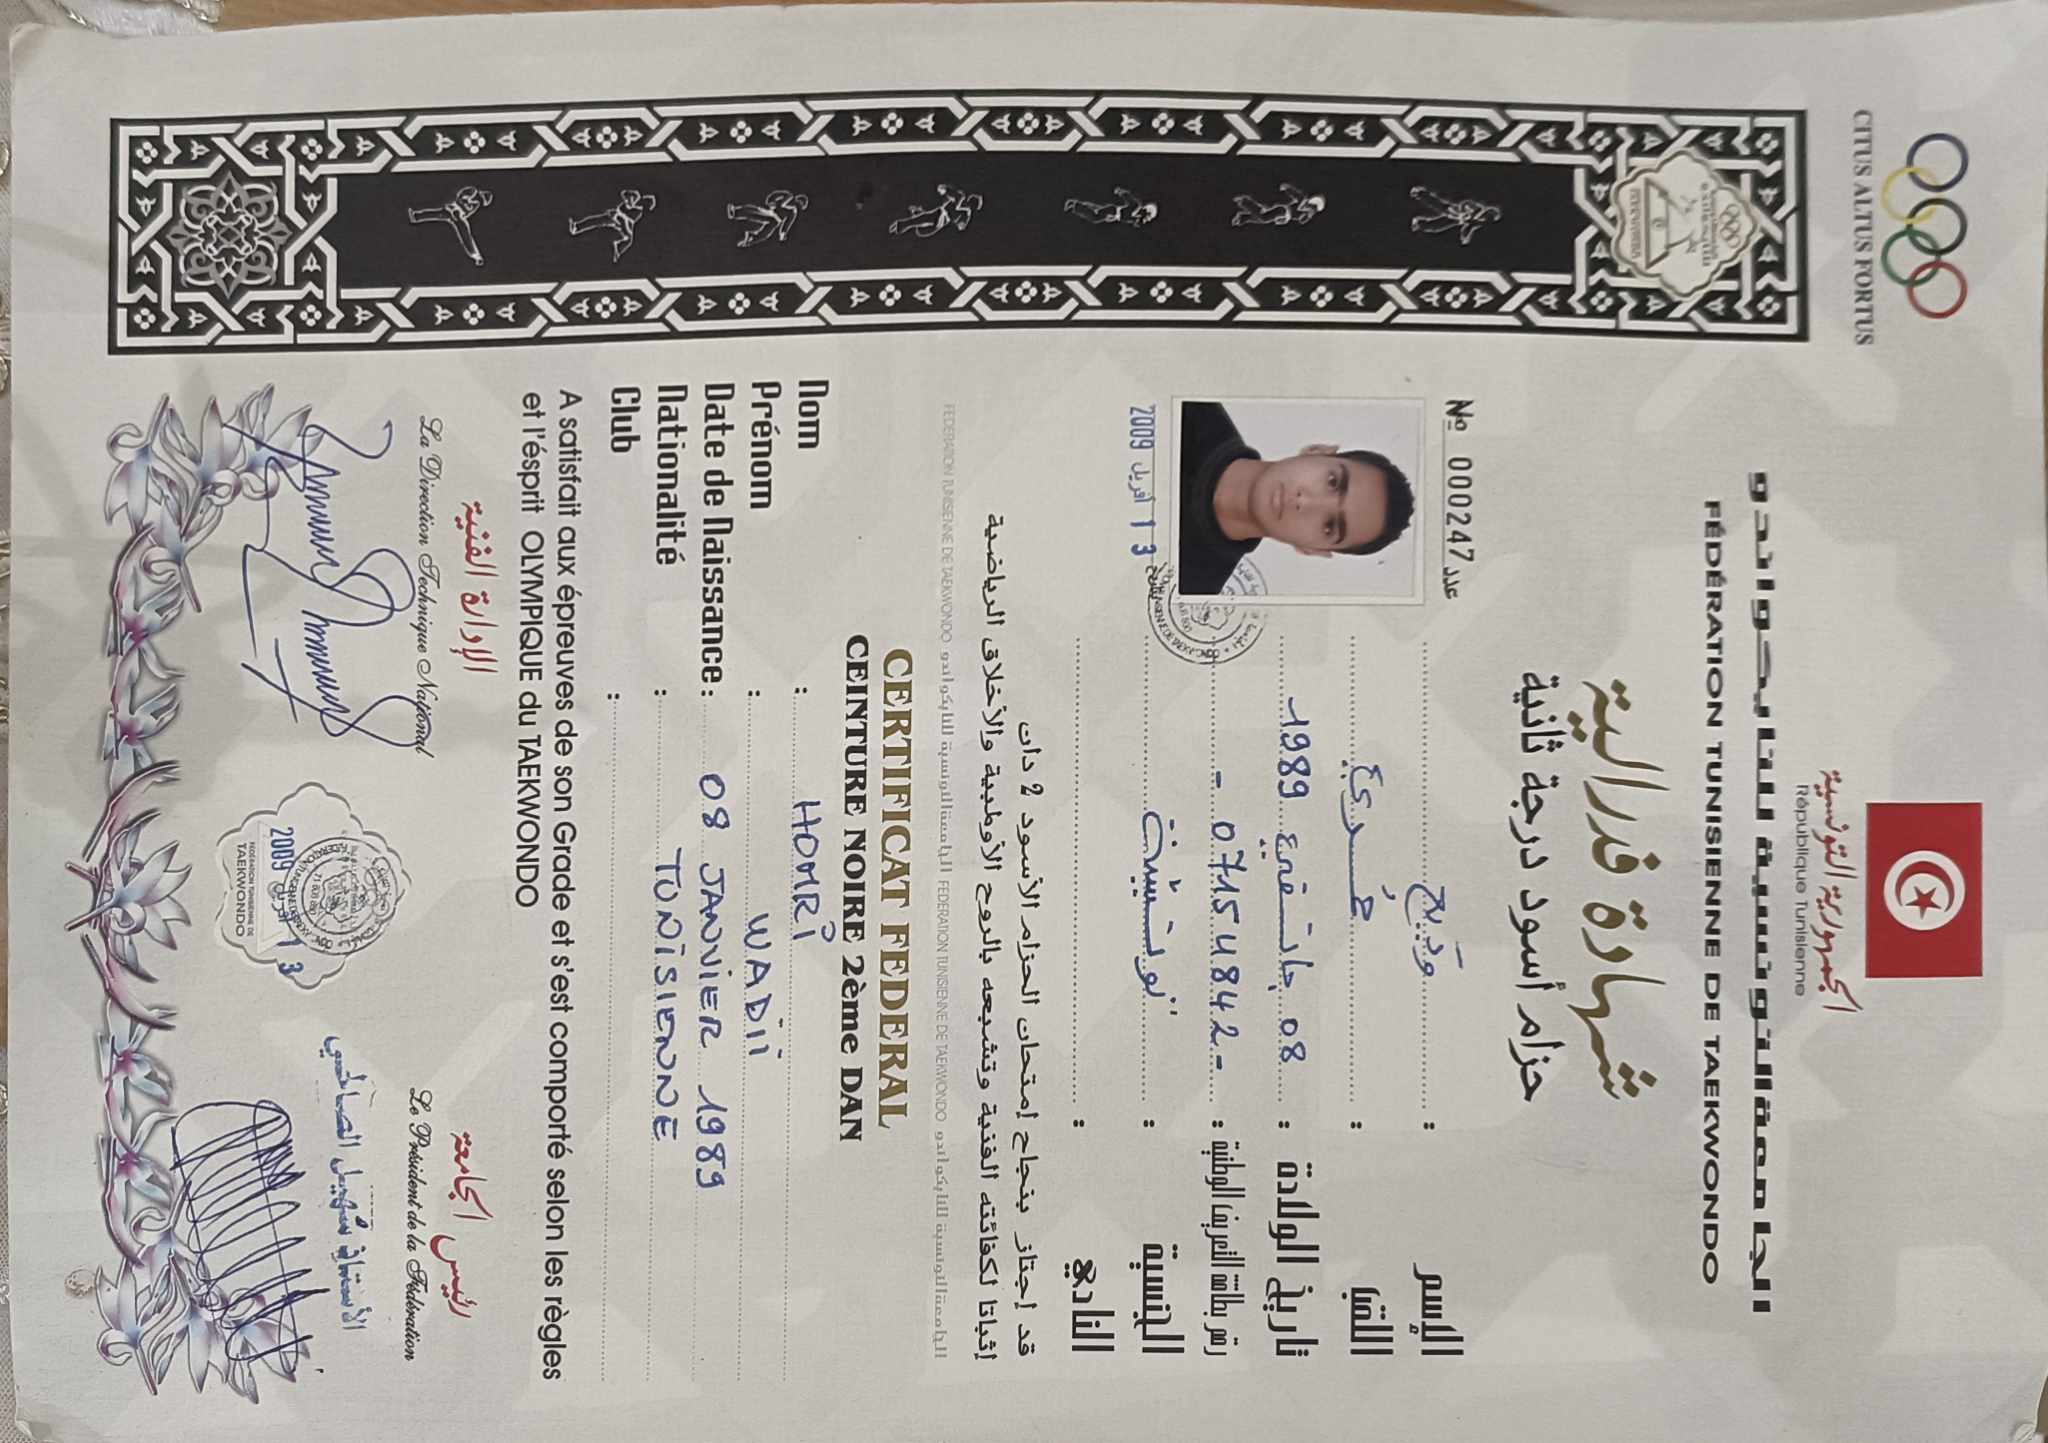 CITUS ALTUS FORTUS
الجمهورية التونسية
République Tunisienne
الجامعة التونسية للتايكواندو
FÉDÉRATION TUNISIENNE DE TAEKWONDO
شهادة فدرالية
حزام أسود درجة ثانية
№ 000247 عدد
الإسم : وَديع
اللقب : حُمري
تاريخ الولادة : 08 جانفي 1989
رقم بطاقة التعريف الوطنية : - 07154842 -
الجنسية : تونسية
النادي :
13 أفريل 2009
قد إجتاز بنجاح إمتحان الحزام الأسود 2 دان
إثباتا لكفائته الفنية وتشبعه بالروح الأولمبية والأخلاق الرياضية
الجامعة التونسية للتايكواندو FEDERATION TUNISIENNE DE TAEKWONDO الجامعة التونسية للتايكواندو FEDERATION TUNISIENNE DE TAEKWONDO
CERTIFICAT FEDERAL
CEINTURE NOIRE 2ème DAN
Nom : HOMRI
Prénom : WADII
Date de Naissance : 08 JANVIER 1989
Nationalité : TUNISIENNE
Club :
A satisfait aux épreuves de son Grade et s'est comporté selon les règles
et l'ésprit OLYMPIQUE du TAEKWONDO
الإدارة الفنية
La Direction Technique National
رئيس الجامعة
Le Président de la Fédération
الأستاذ
13 أفريل 2009
FEDERATION TUNISIENNE DE
TAEKWONDO